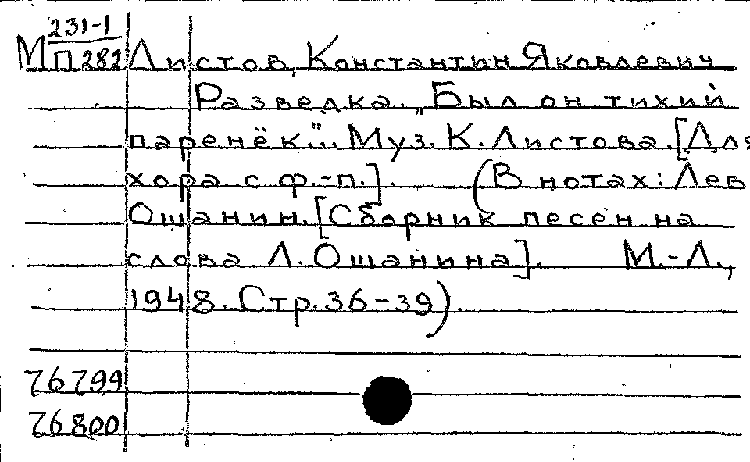 231-1
М П 282 Листов, Константин Яковлевич
Разведка. „Был он тихий
паренёк"... Муз. К. Листова. [Для
хора с ф.-п.]. (В нотах: Лев
Ошанин. [Сборник песен на
слова Л. Ошанина]. М.-Л.,
1948. Стр. 36-39)
76799
76800